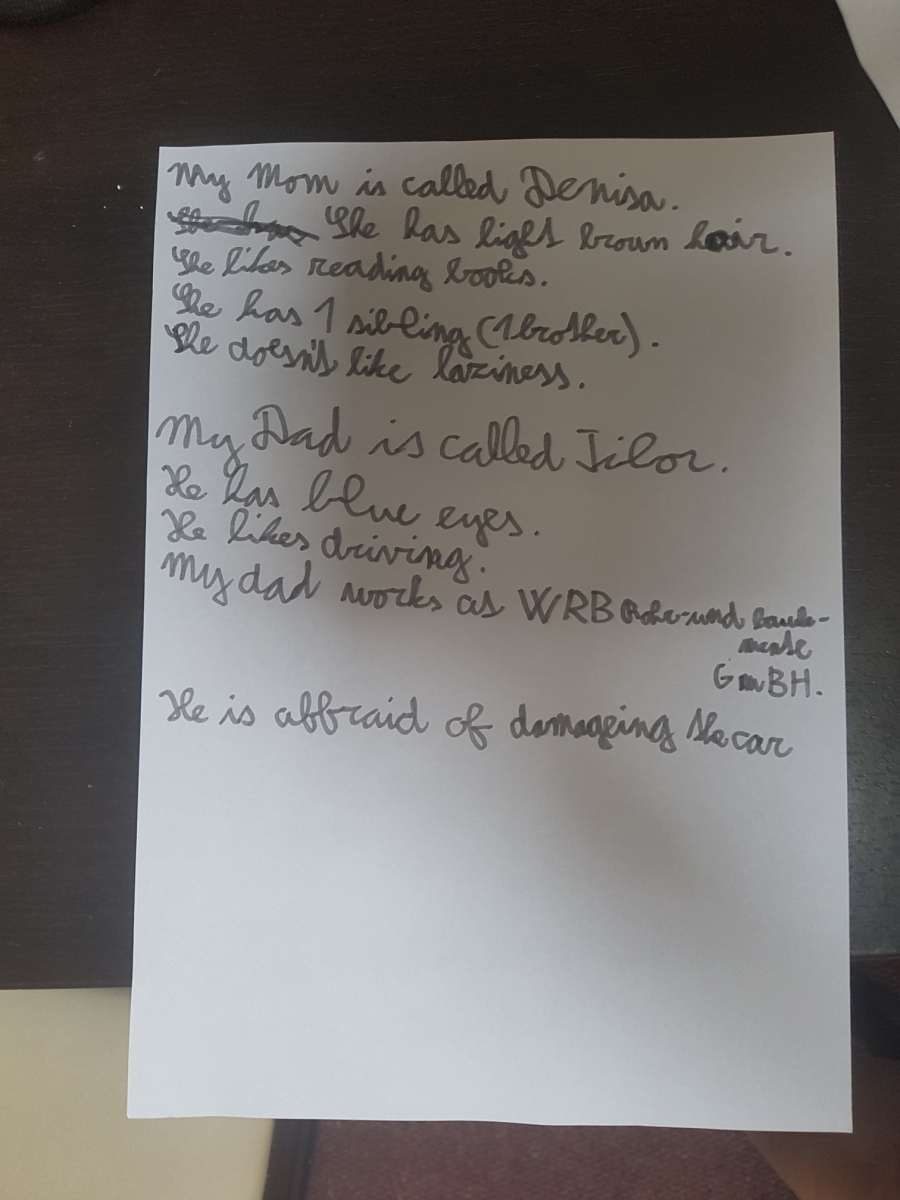 My Mom is called Denisa.
She has light brown hair.
She likes reading books.
She has 1 sibling (1 brother).
She doesn't like laziness.
My Dad is called Tibor.
He has blue eyes.
He likes driving.
My dad works as WRB Rohr-und Baude-
mente
GmBH.
He is affraid of damageing the car